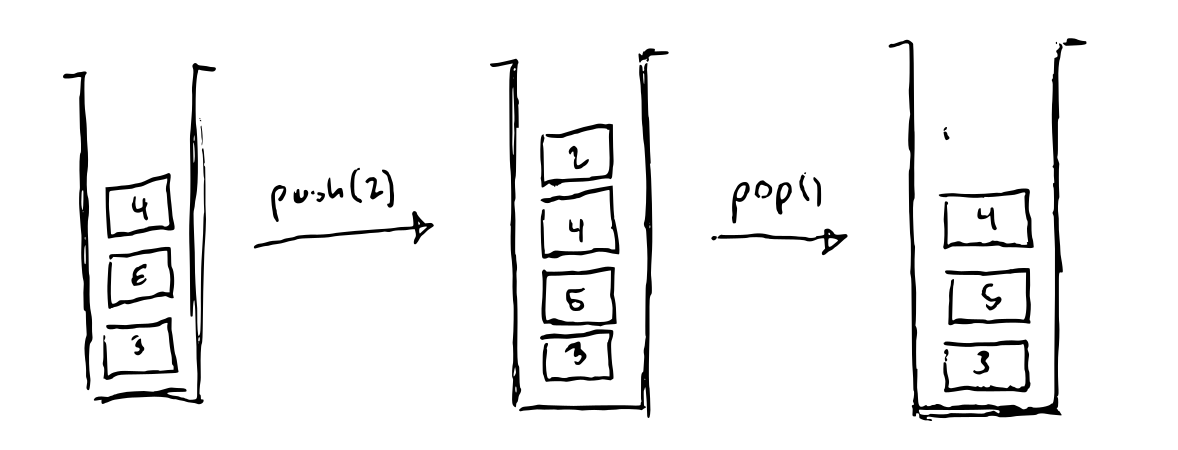 4
3
push(2)
2
4
5
3
pop()
4
5
3